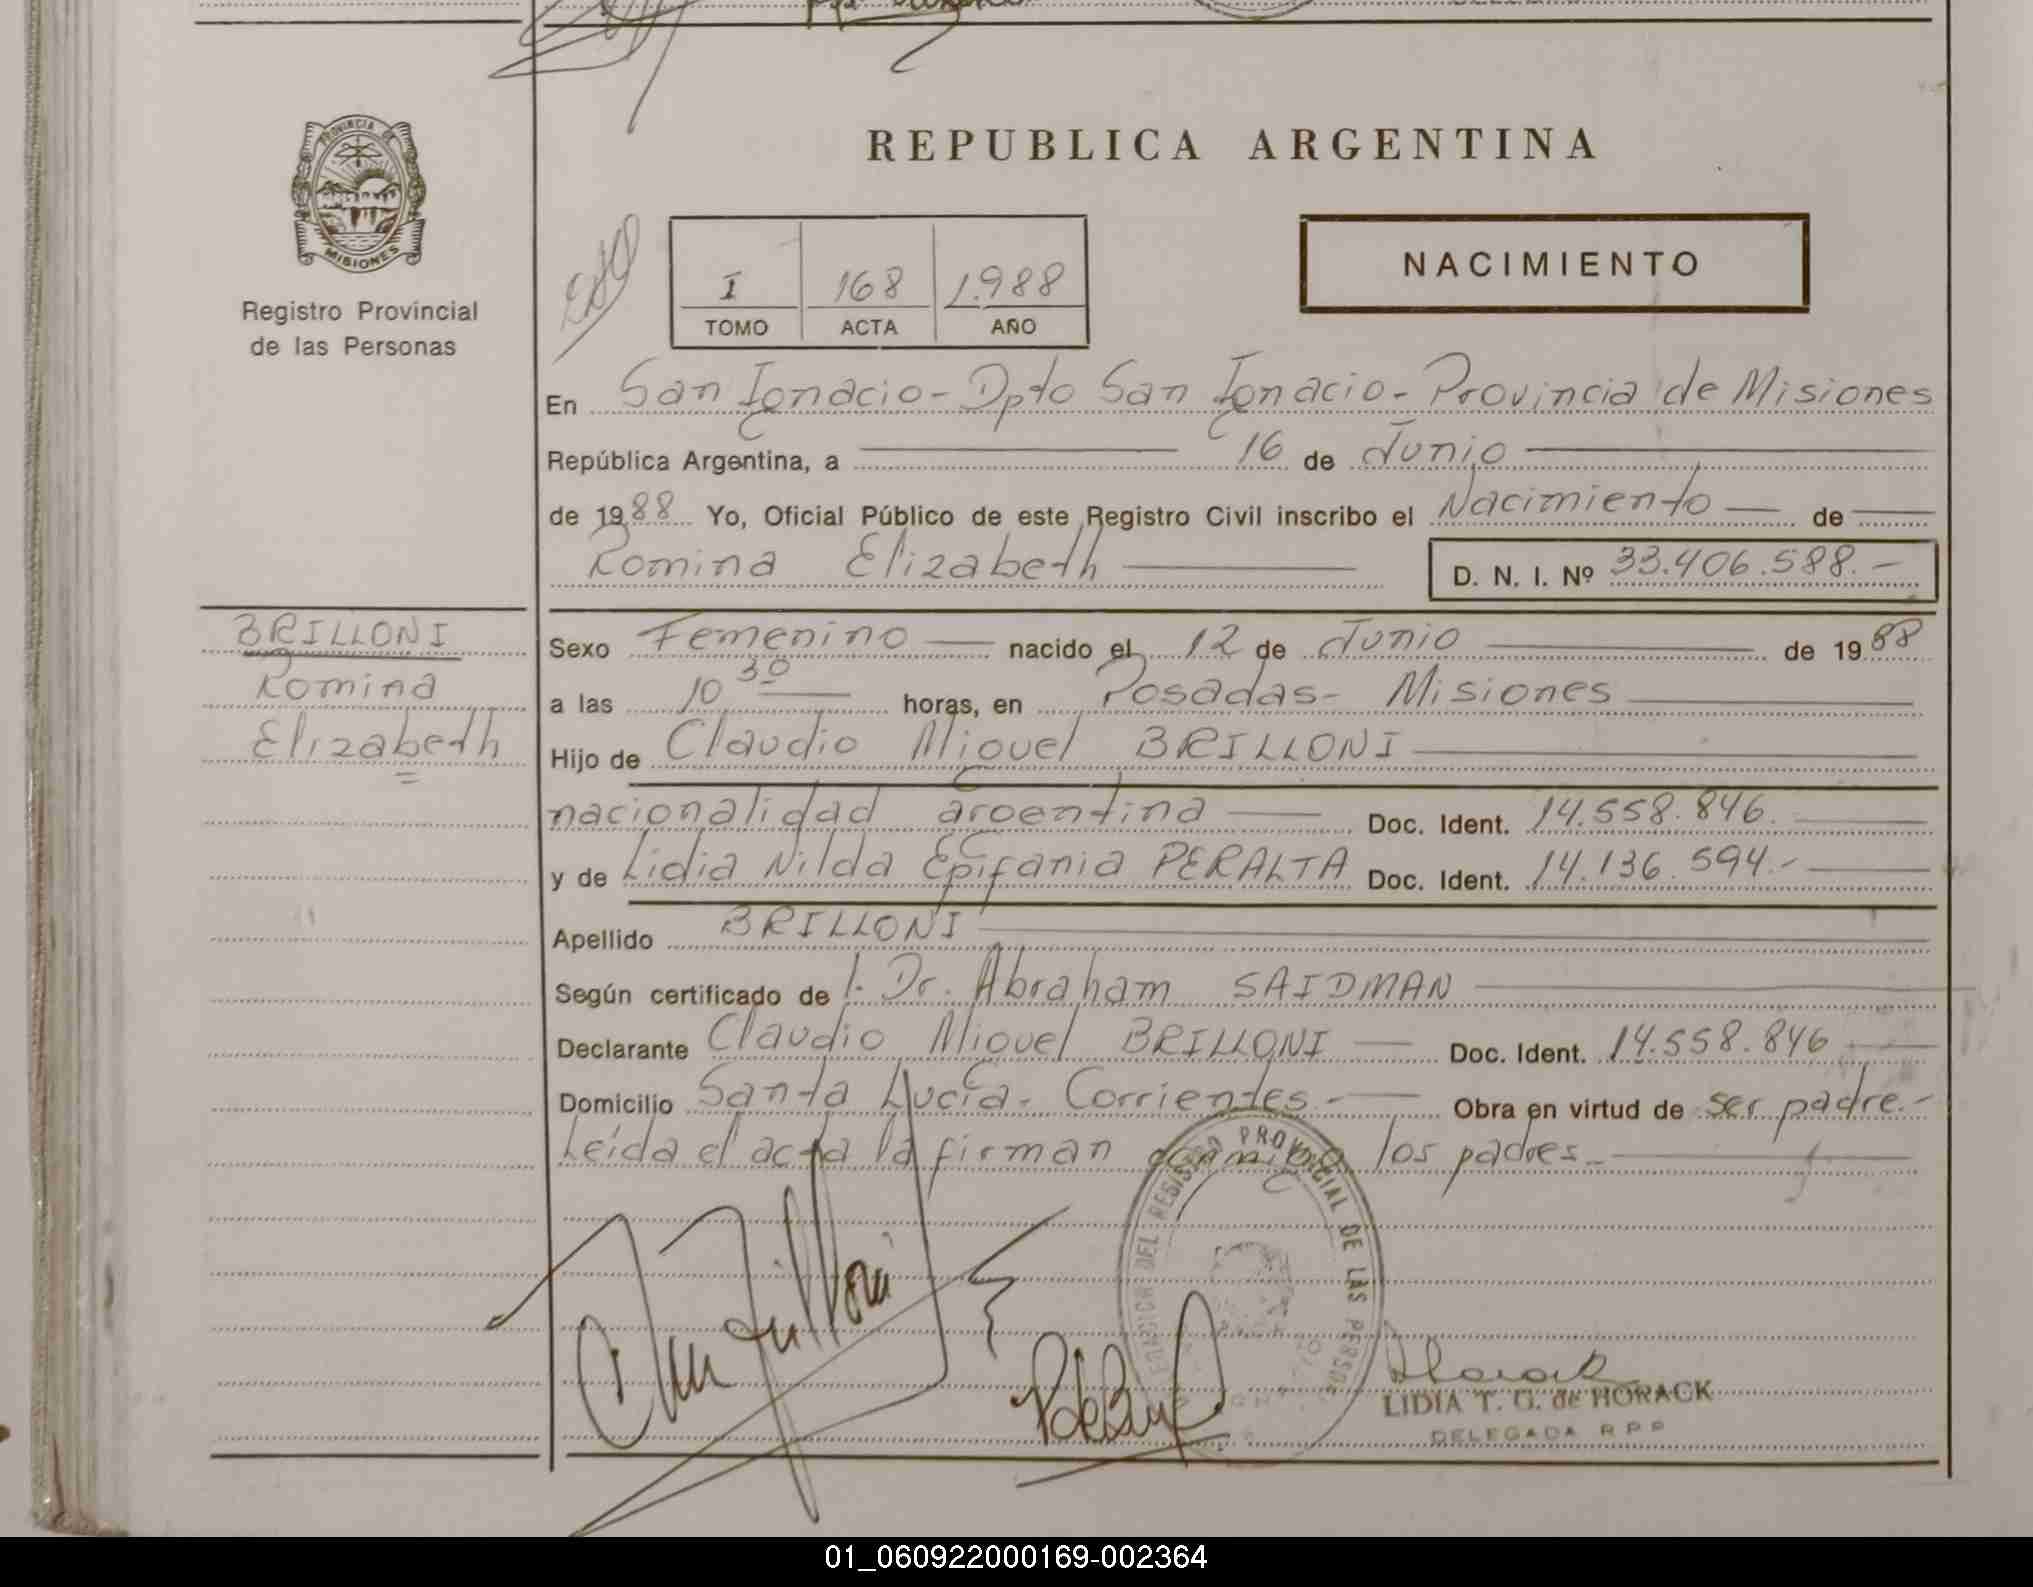 REPUBLICA ARGENTINA
PROVINCIA DE
MISIONES
Registro Provincial
de las Personas
NACIMIENTO
I 168 1.988
TOMO ACTA AÑO
En San Ignacio - Dpto San Ignacio - Provincia de Misiones
República Argentina, a 16 de Junio
de 1988 Yo, Oficial Público de este Registro Civil inscribo el Nacimiento de
Romina Elizabeth D. N. I. Nº 33.406.588.-
BRILLONI
Romina
Elizabeth
Sexo Femenino nacido el 12 de Junio de 1988
a las 10 30 horas, en Posadas - Misiones
Hijo de Claudio Miguel BRILLONI
nacionalidad argentina Doc. Ident. 14.558.846.
y de Lidia Nilda Epifania PERALTA Doc. Ident. 14.136.594.-
Apellido BRILLONI
Según certificado de l. Dr. Abraham SAIDMAN
Declarante Claudio Miguel BRILLONI Doc. Ident. 14.558.846
Domicilio Santa Lucía - Corrientes.- Obra en virtud de ser padre.-
Leída el acta la firman conmigo los padres.-
DEL REGISTRO PROVINCIAL DE LAS PERSONAS
LIDIA T. G. de HORACK
DELEGADA R P P
01_060922000169-002364